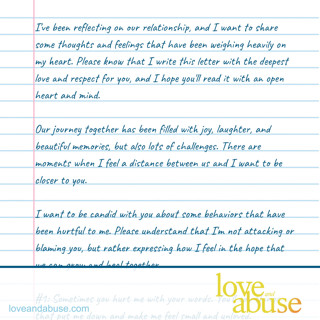 I've been reflecting on our relationship, and I want to share
some thoughts and feelings that have been weighing heavily on
my heart. Please know that I write this letter with the deepest
love and respect for you, and I hope you'll read it with an open
heart and mind.
Our journey together has been filled with joy, laughter, and
beautiful memories, but also lots of challenges. There are
moments when I feel a distance between us and I want to be
closer to you.
I want to be candid with you about some behaviors that have
been hurtful to me. Please understand that I'm not attacking or
blaming you, but rather expressing how I feel in the hope that
we can grow and heal together.
#1: Sometimes you hurt me with your words. You
that put me down and make me feel small and
love and
abuse
loveandabuse.com